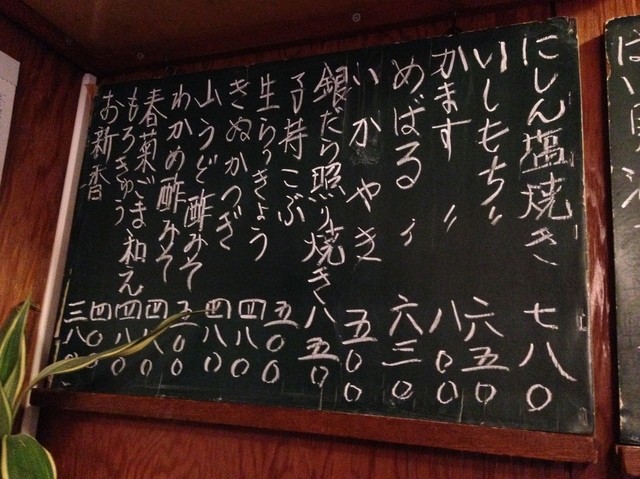 にしん塩焼き 七八〇
いしもち〃 六五〇
かます〃 八〇〇
めばる〃 六三〇
いかやき 五〇〇
銀だら照り焼き 八五〇
子持こぶ 五〇〇
生らっきょう 四八〇
きぬかつぎ 四八〇
山うど酢みそ
わかめ酢みそ 四八〇
春菊ごま和え 四八〇
もろきゅう 四〇〇
お新香 三八〇